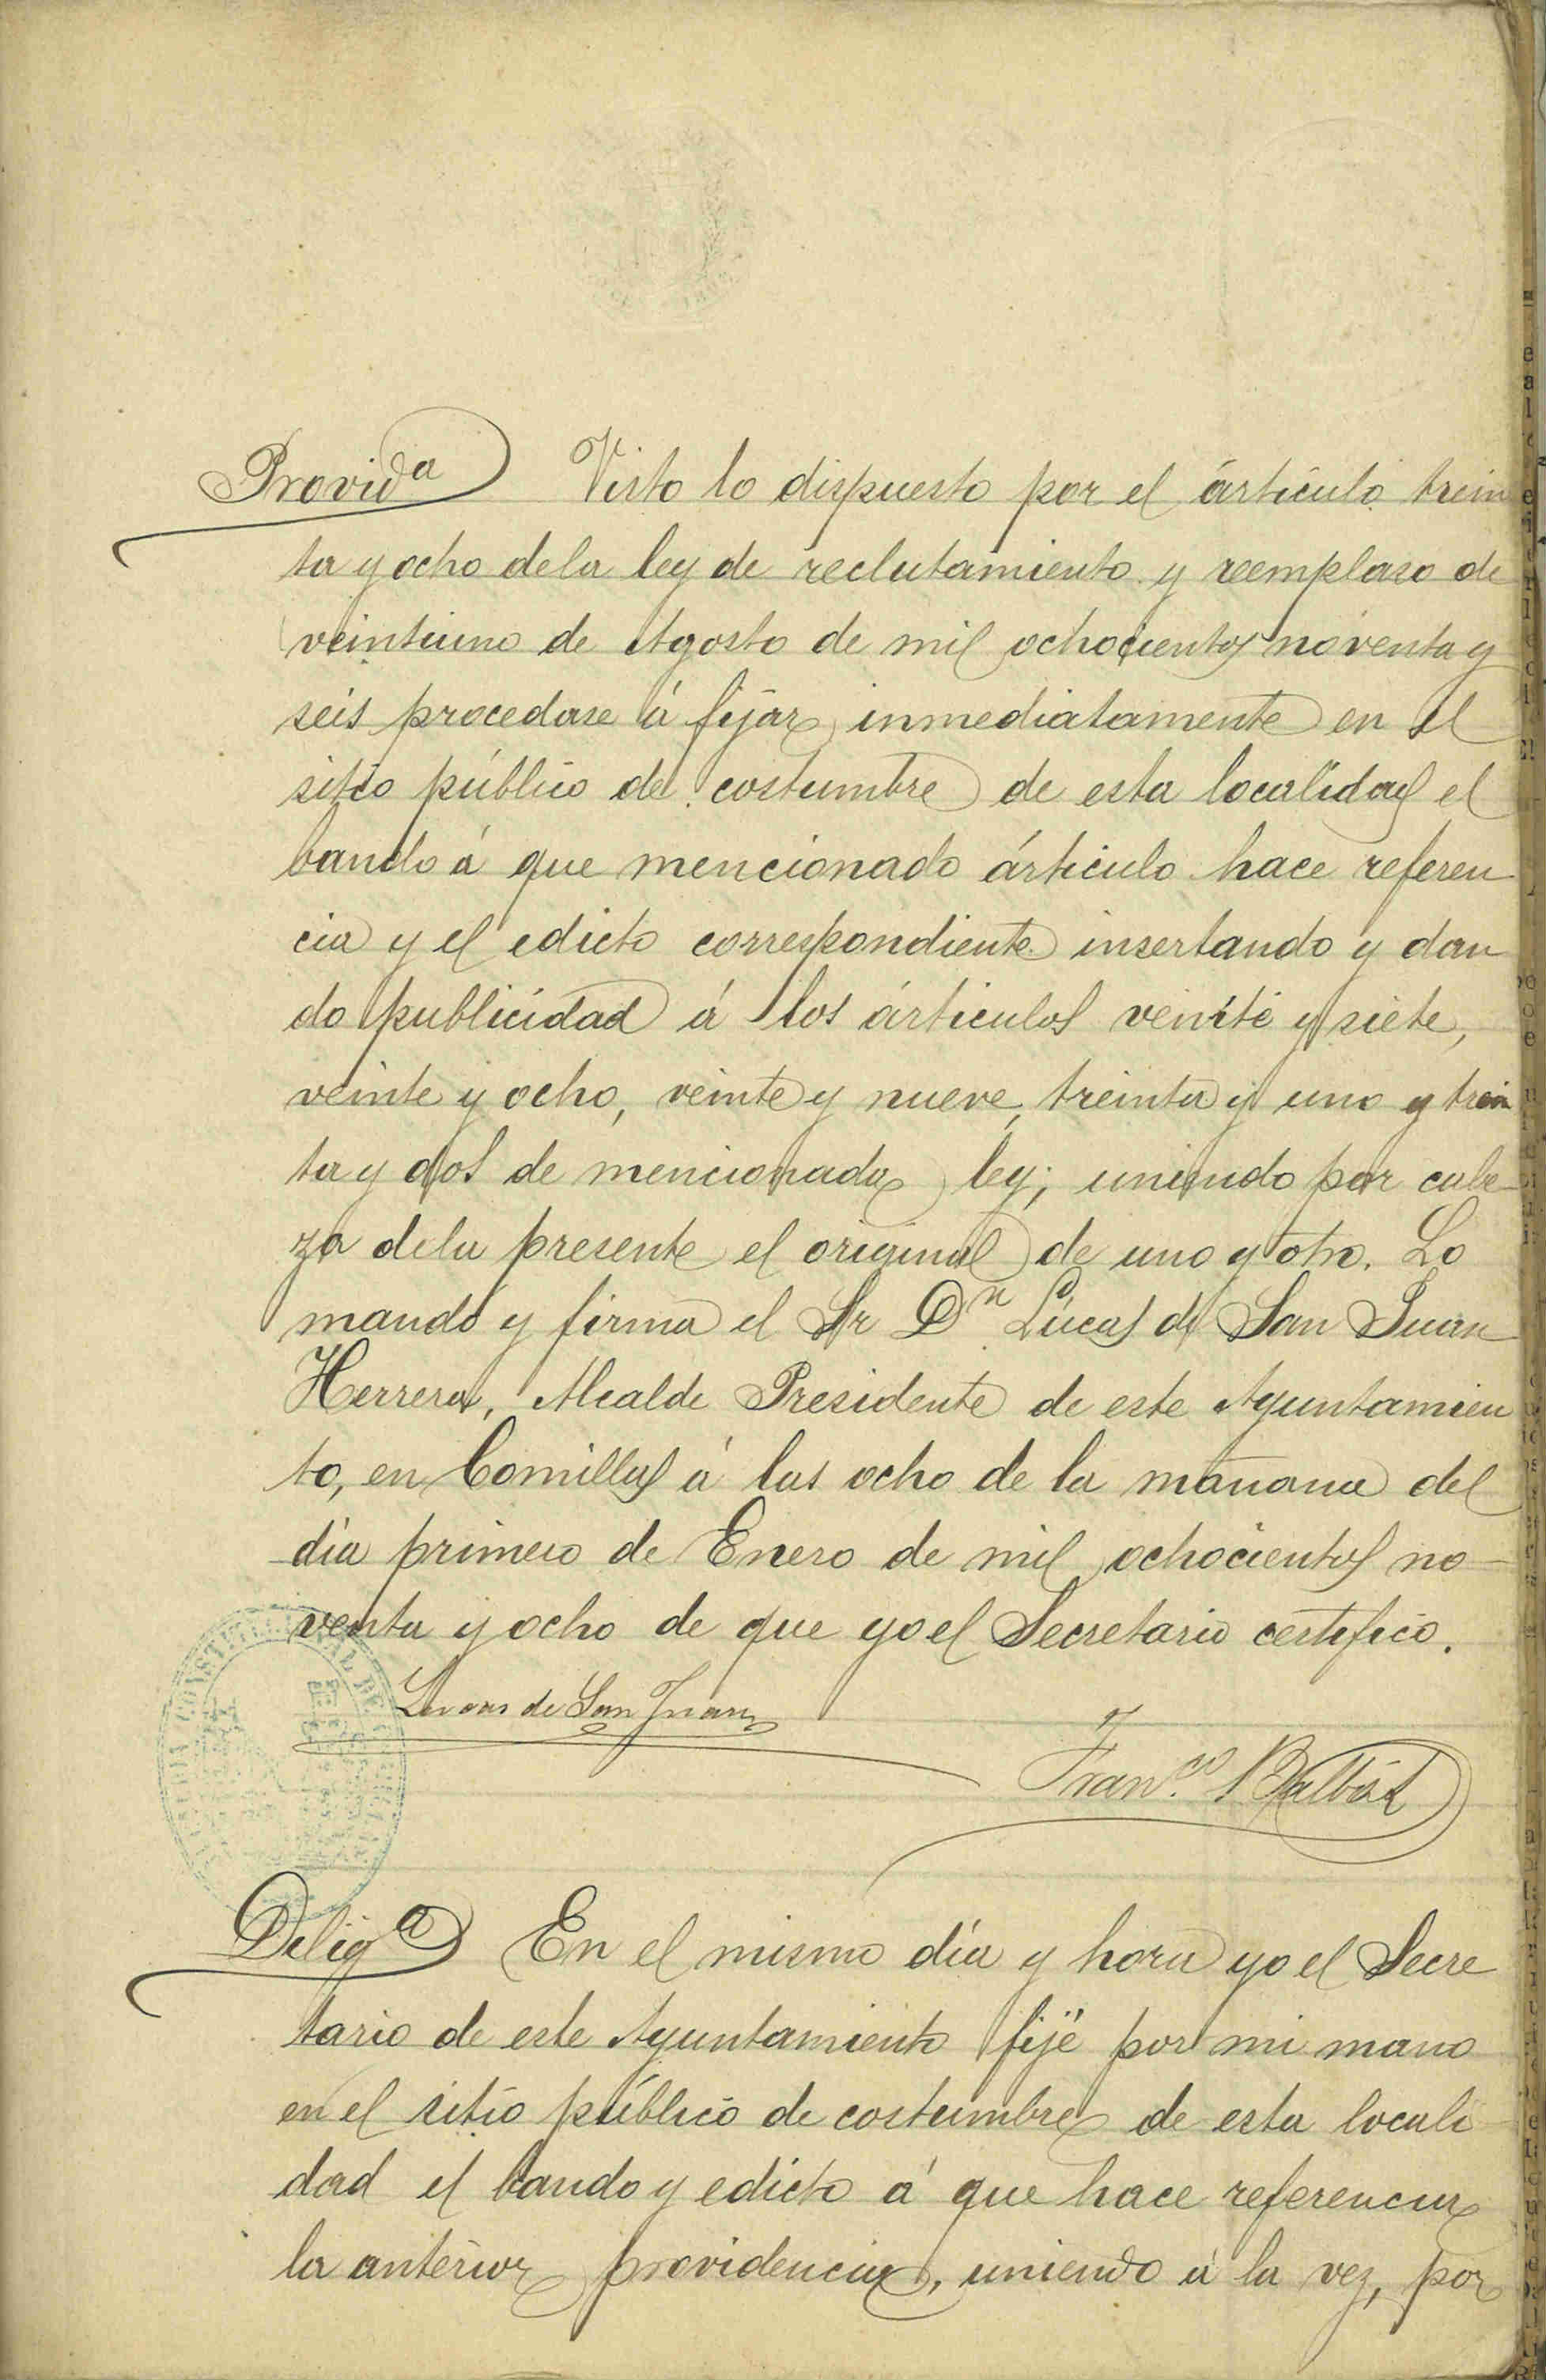 Provid.ª Visto lo dispuesto por el árticulo trein
ta y ocho de la ley de reclutamiento y reemplaso de
veintiuno de Agosto de mil ochocientos noventa y
seis procedase á fijar inmediatamente en el
sitio público de costumbre de esta localidad el
bando á que mencionado árticulo hace referen
cia y el edicto correspondiente insertando y dan
do publicidad á los árticulos veinte y siete,
veinte y ocho, veinte y nueve, treinta y uno y trein
ta y dos de mencionada ley; uniendo por cabe
za de la presente el original de uno y otro. Lo
mandó y firma el Sr Dn Lúcas de San Juan
Herrera, Alcalde Presidente de este Ayuntamien
to, en Comillas á las ocho de la mañana del
día primero de Enero de mil ochocientos no
venta y ocho de que yo el Secretario certifico.
Lucas de San Juan
Fran.co Balbás
Dilig.ª En el mismo día y hora yo el Secre
tario de este Ayuntamiento fijé por mi mano
en el sitio público de costumbre de esta locali
dad el bando y edicto á que hace referencia
la anterior providencia, uniendo á la vez, por